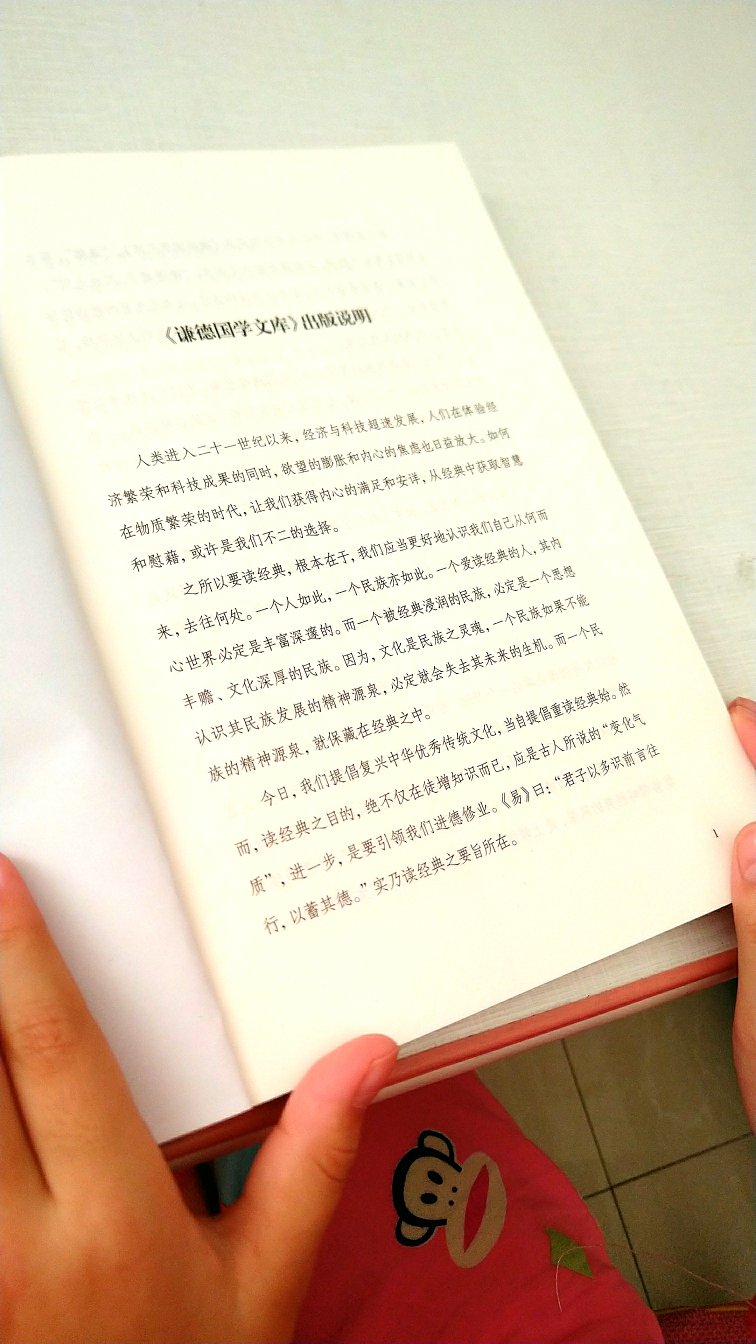 《谦德国学文库》出版说明
人类进入二十一世纪以来，经济与科技超速发展，人们在体验经
济繁荣和科技成果的同时，欲望的膨胀和内心的焦虑也日益放大。如何
在物质繁荣的时代，让我们获得内心的满足和安详，从经典中获取智慧
和慰藉，或许是我们不二的选择。
之所以要读经典，根本在于，我们应当更好地认识我们自己从何而
来，去往何处。一个人如此，一个民族亦如此。一个爱读经典的人，其内
心世界必定是丰富深邃的。而一个被经典浸润的民族，必定是一个思想
丰赡、文化深厚的民族。因为，文化是民族之灵魂，一个民族如果不能
认识其民族发展的精神源泉，必定就会失去其未来的生机。而一个民
族的精神源泉，就保藏在经典之中。
今日，我们提倡复兴中华优秀传统文化，当自提倡重读经典始。然
而，读经典之目的，绝不仅在徒增知识而已，应是古人所说的“变化气
质”，进一步，是要引领我们进德修业。《易》曰：“君子以多识前言往
行，以蓄其德。”实乃读经典之要旨所在。
1